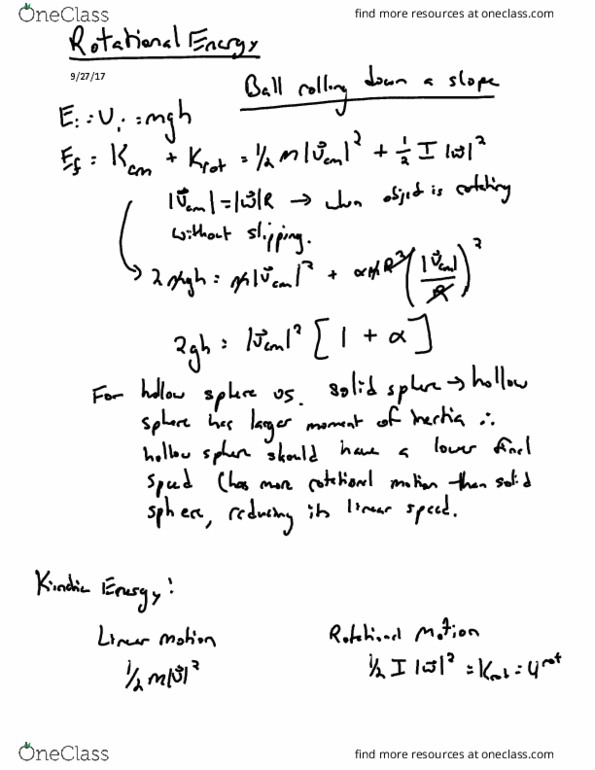 OneClass
find more resources at oneclass.com
Rotational Energy
9/27/17
Ball rolling down a slope
Ei = Ui = mgh
Ef = Kcm + Krot = 1/2 m|v⃗cm|² + 1/2 I |ω⃗|²
|v⃗cm| = |ω⃗|R → when object is rotating
without slipping.
→ 2mgh = m|v⃗cm|² + αmR²(|v⃗cm|/R)²
2gh = |v⃗cm|² [1 + α]
For hollow sphere vs. solid sphere → hollow
sphere has larger moment of inertia ∴
hollow sphere should have a lower final
speed (has more rotational motion than solid
sphere, reducing its linear speed.
Kinetic Energy:
Linear motion
Rotational Motion
1/2 m|v⃗|²
1/2 I |ω⃗|² = Krot =
OneClass
find more resources at oneclass.com